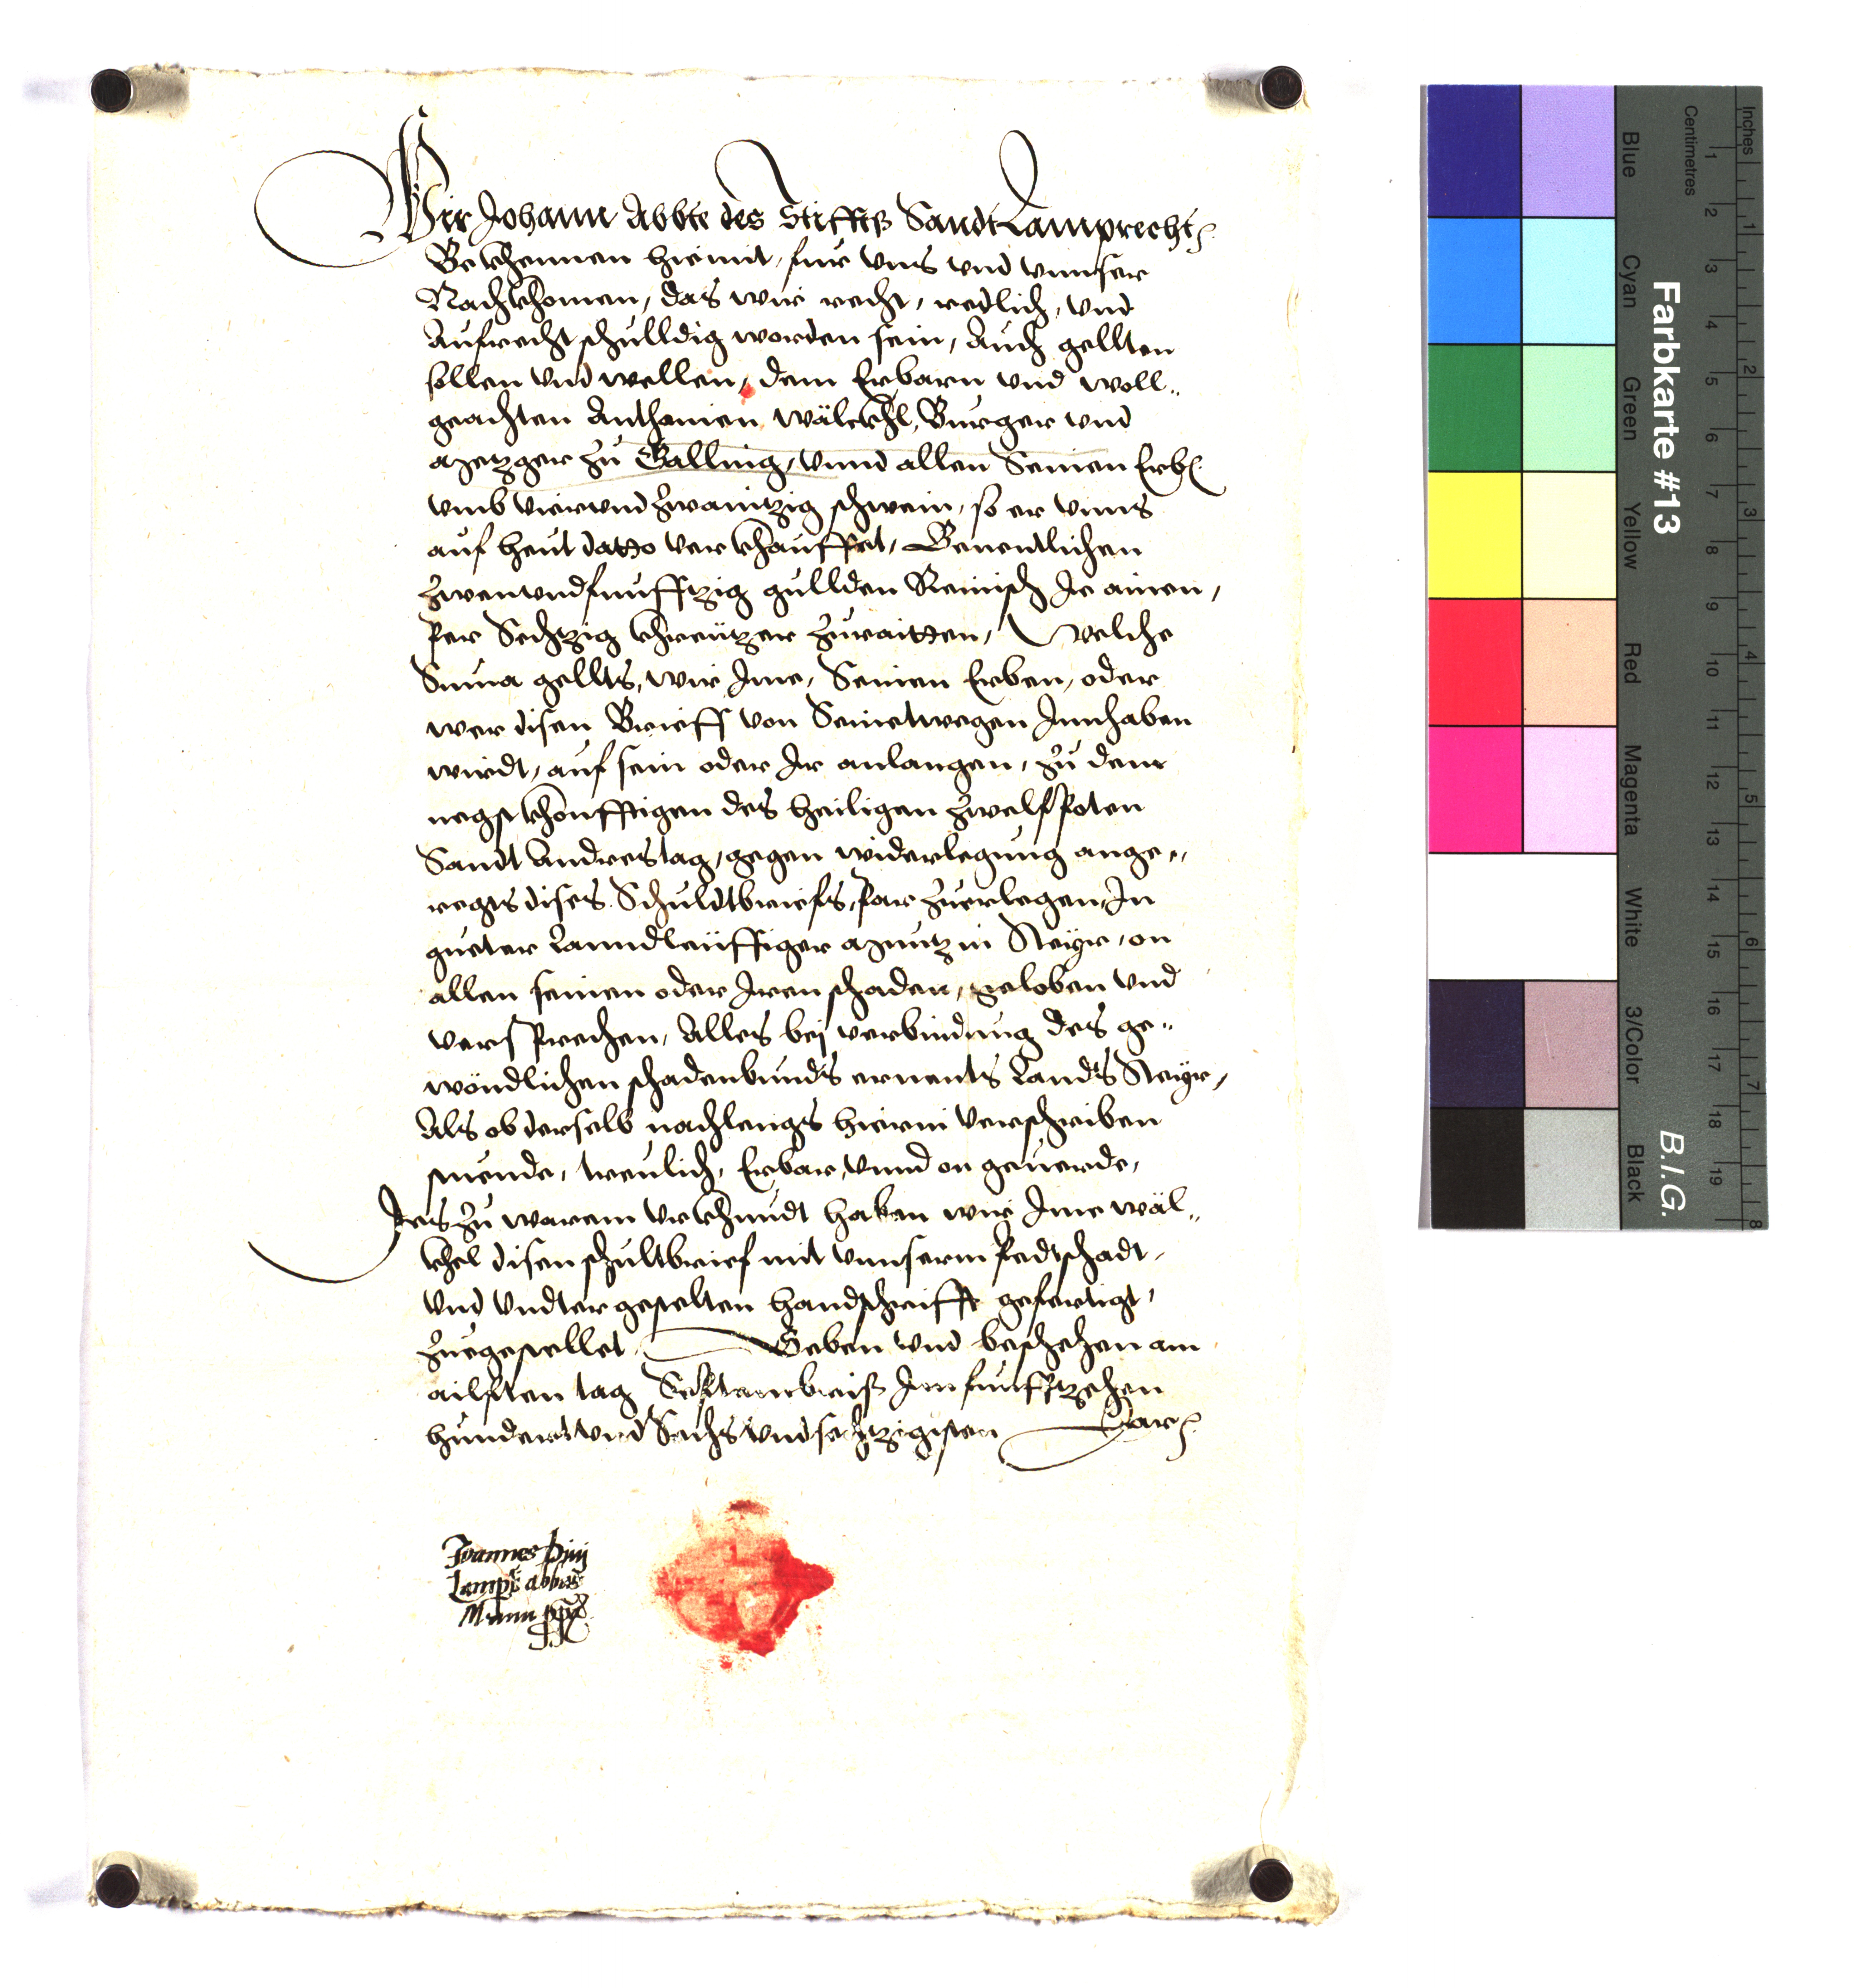 Wir Johann Abbte des Stiffts Sandt Lamprecht
Bekhennen hiemit, fur vns vnd vnnser
Nachkhomen, das wir recht, redlich, vnd
Aufrecht schulldig worden sein, Auch gellten
sollen vnd wellen, dem Erbarn vnd woll„
geachten Anthonien Wälckhl, Burger vnd
Metzger zu Gallling, vnnd allen Seinen Erb
vmb vierundzwaintzig schwein, so er vnns
auf heut datto verkhauffet, Benentlichen
zwenvndfunfftzig gullden Reinisch Je ainen,
per Sechtzig khreützer zuraitten, Welche
Suma gellts, wir Ime, Seinen Erben, oder
wer disen Brieff von Seinetwegen Innhaben
wirdt, auf sein oder Ir anlangen, zu dem
negstkhonfftigen des heiligen zwelfpoten
Sandt Andrestag, gegen widerlegung ange„
regts dises Schuldtbriefs, par zuerlegen, In
gueter Lanndleüffiger Müntz in Steyr, on
allen seinen oder Iren schaden, geloben vnd
versprechen, Alles bej verbindung des ge„
wöndlichen schadenbunds ernents Landts Steyr,
Als ob derselb nachlengs hierin verschriben
stuende, treulich, Erbar, vnnd on geuerde,
Des zu warem vrkhundt haben wir Ime Wäl„
khel disen schultbrief mit vnnserm Pedtschadt,
vnd vndtergestelten handschrifft gefertigt,
zuegestellet, Geben vnd beschehen am
ailfften tag Septembris Im funfftzehen
hundert vnd Sechs vnd sechtzigisten Jar
Joannes Diui
Lamp: abbas
Manu ppa
Farbkarte #13
B.I.G.
Inches
Centimetres
1 2 3 4 5 6 7 8 9 10 11 12 13 14 15 16 17 18 19
1 2 3 4 5 6 7 8
Blue
Cyan
Green
Yellow
Red
Magenta
White
3/Color
Black